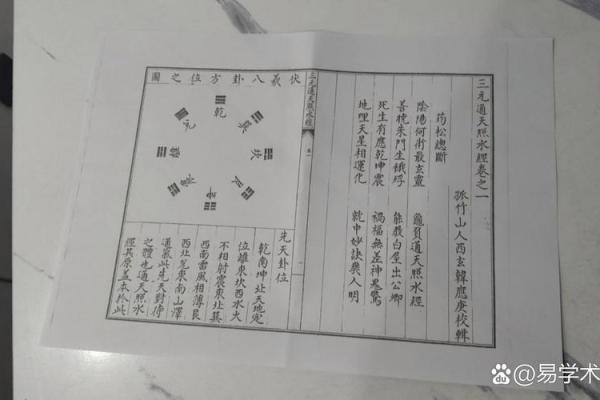 三元通天照水經卷之一
孤竹山人西玄韓應庚校輯
筠松總斷
陰陽何術最玄靈 龜負通天照水經
善 朱門生餓殍 能教白屋出公卿
死生有應乾坤震 禍福無差神鬼驚
地理天星相運化 中妙訣 人明
三元通天照水經
伏羲八卦方位之圖
乾
兌
巽
離
坎
震
艮
坤
先天卦位
乾南坤北天地定
位離東坎西水火
不相射震東北巽
西南雷風相薄艮
西北兌東南山澤
通氣此先天對待
之體也通天照水
經其原蓋本於此
du @易学术